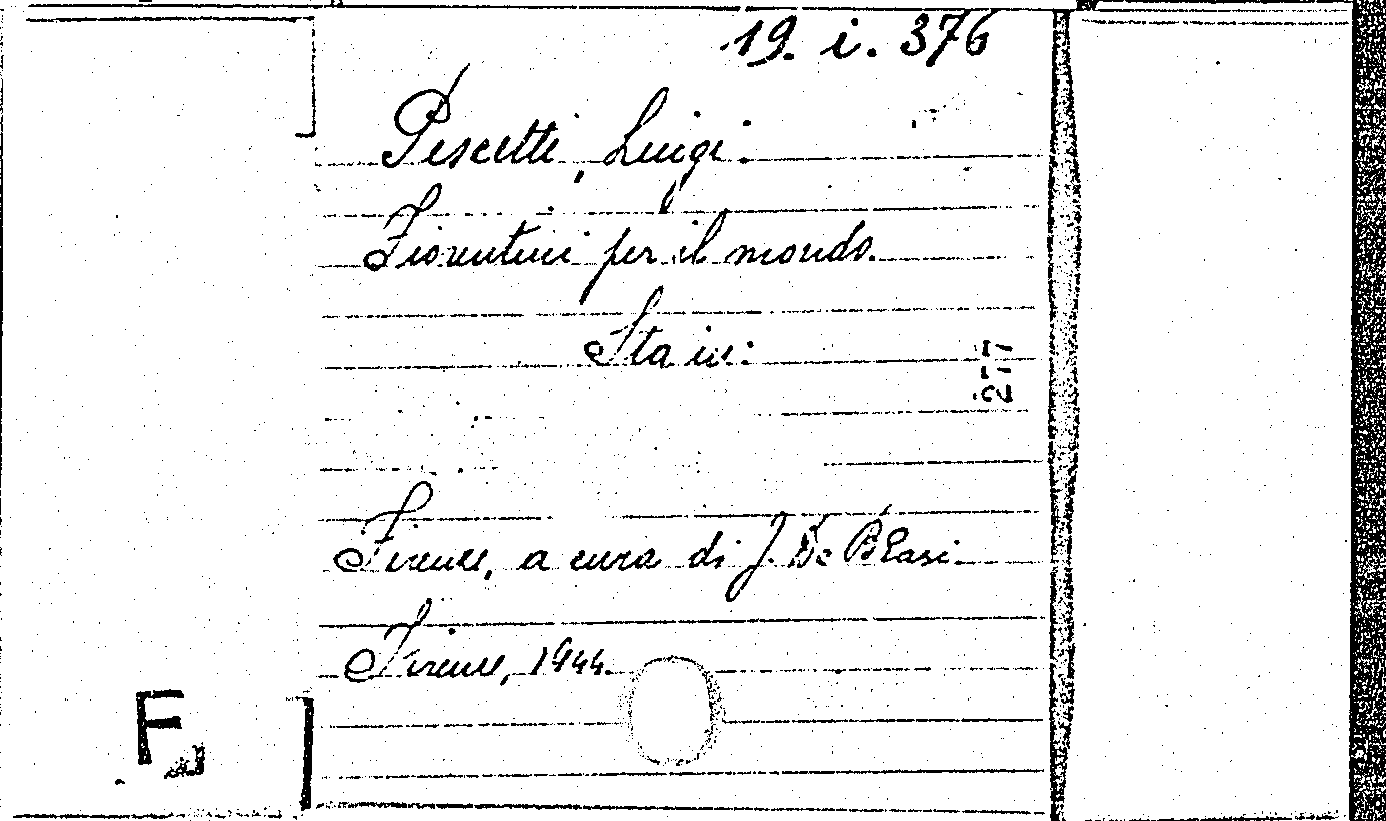 19. i. 376
Pescetti, Luigi.
Fiorentini per il mondo.
Sta in:
277
Firenze, a cura di J. De Blasi.
Firenze, 1944.
F